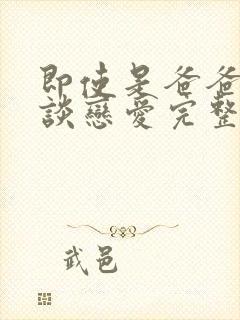 即使是爸爸
談戀愛完整
武邑